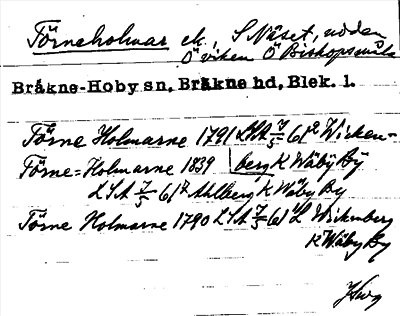 Törneholmar ek. S Näset, udden
Ö viken Ö Bishopsmåla
Bråkne-Hoby sn. Bråkne hd, Blek. l.
Törne Holmarne 1791 LSA 7/5 61² Wirken-
Törne=Holmarne 1839 berg K Wäby By
LSA 7/5 61² Ahlberg K Wäby By
Törne Holmarne 1790 LSA 7/5 61¹ L Wirkenberg
K Wäby By